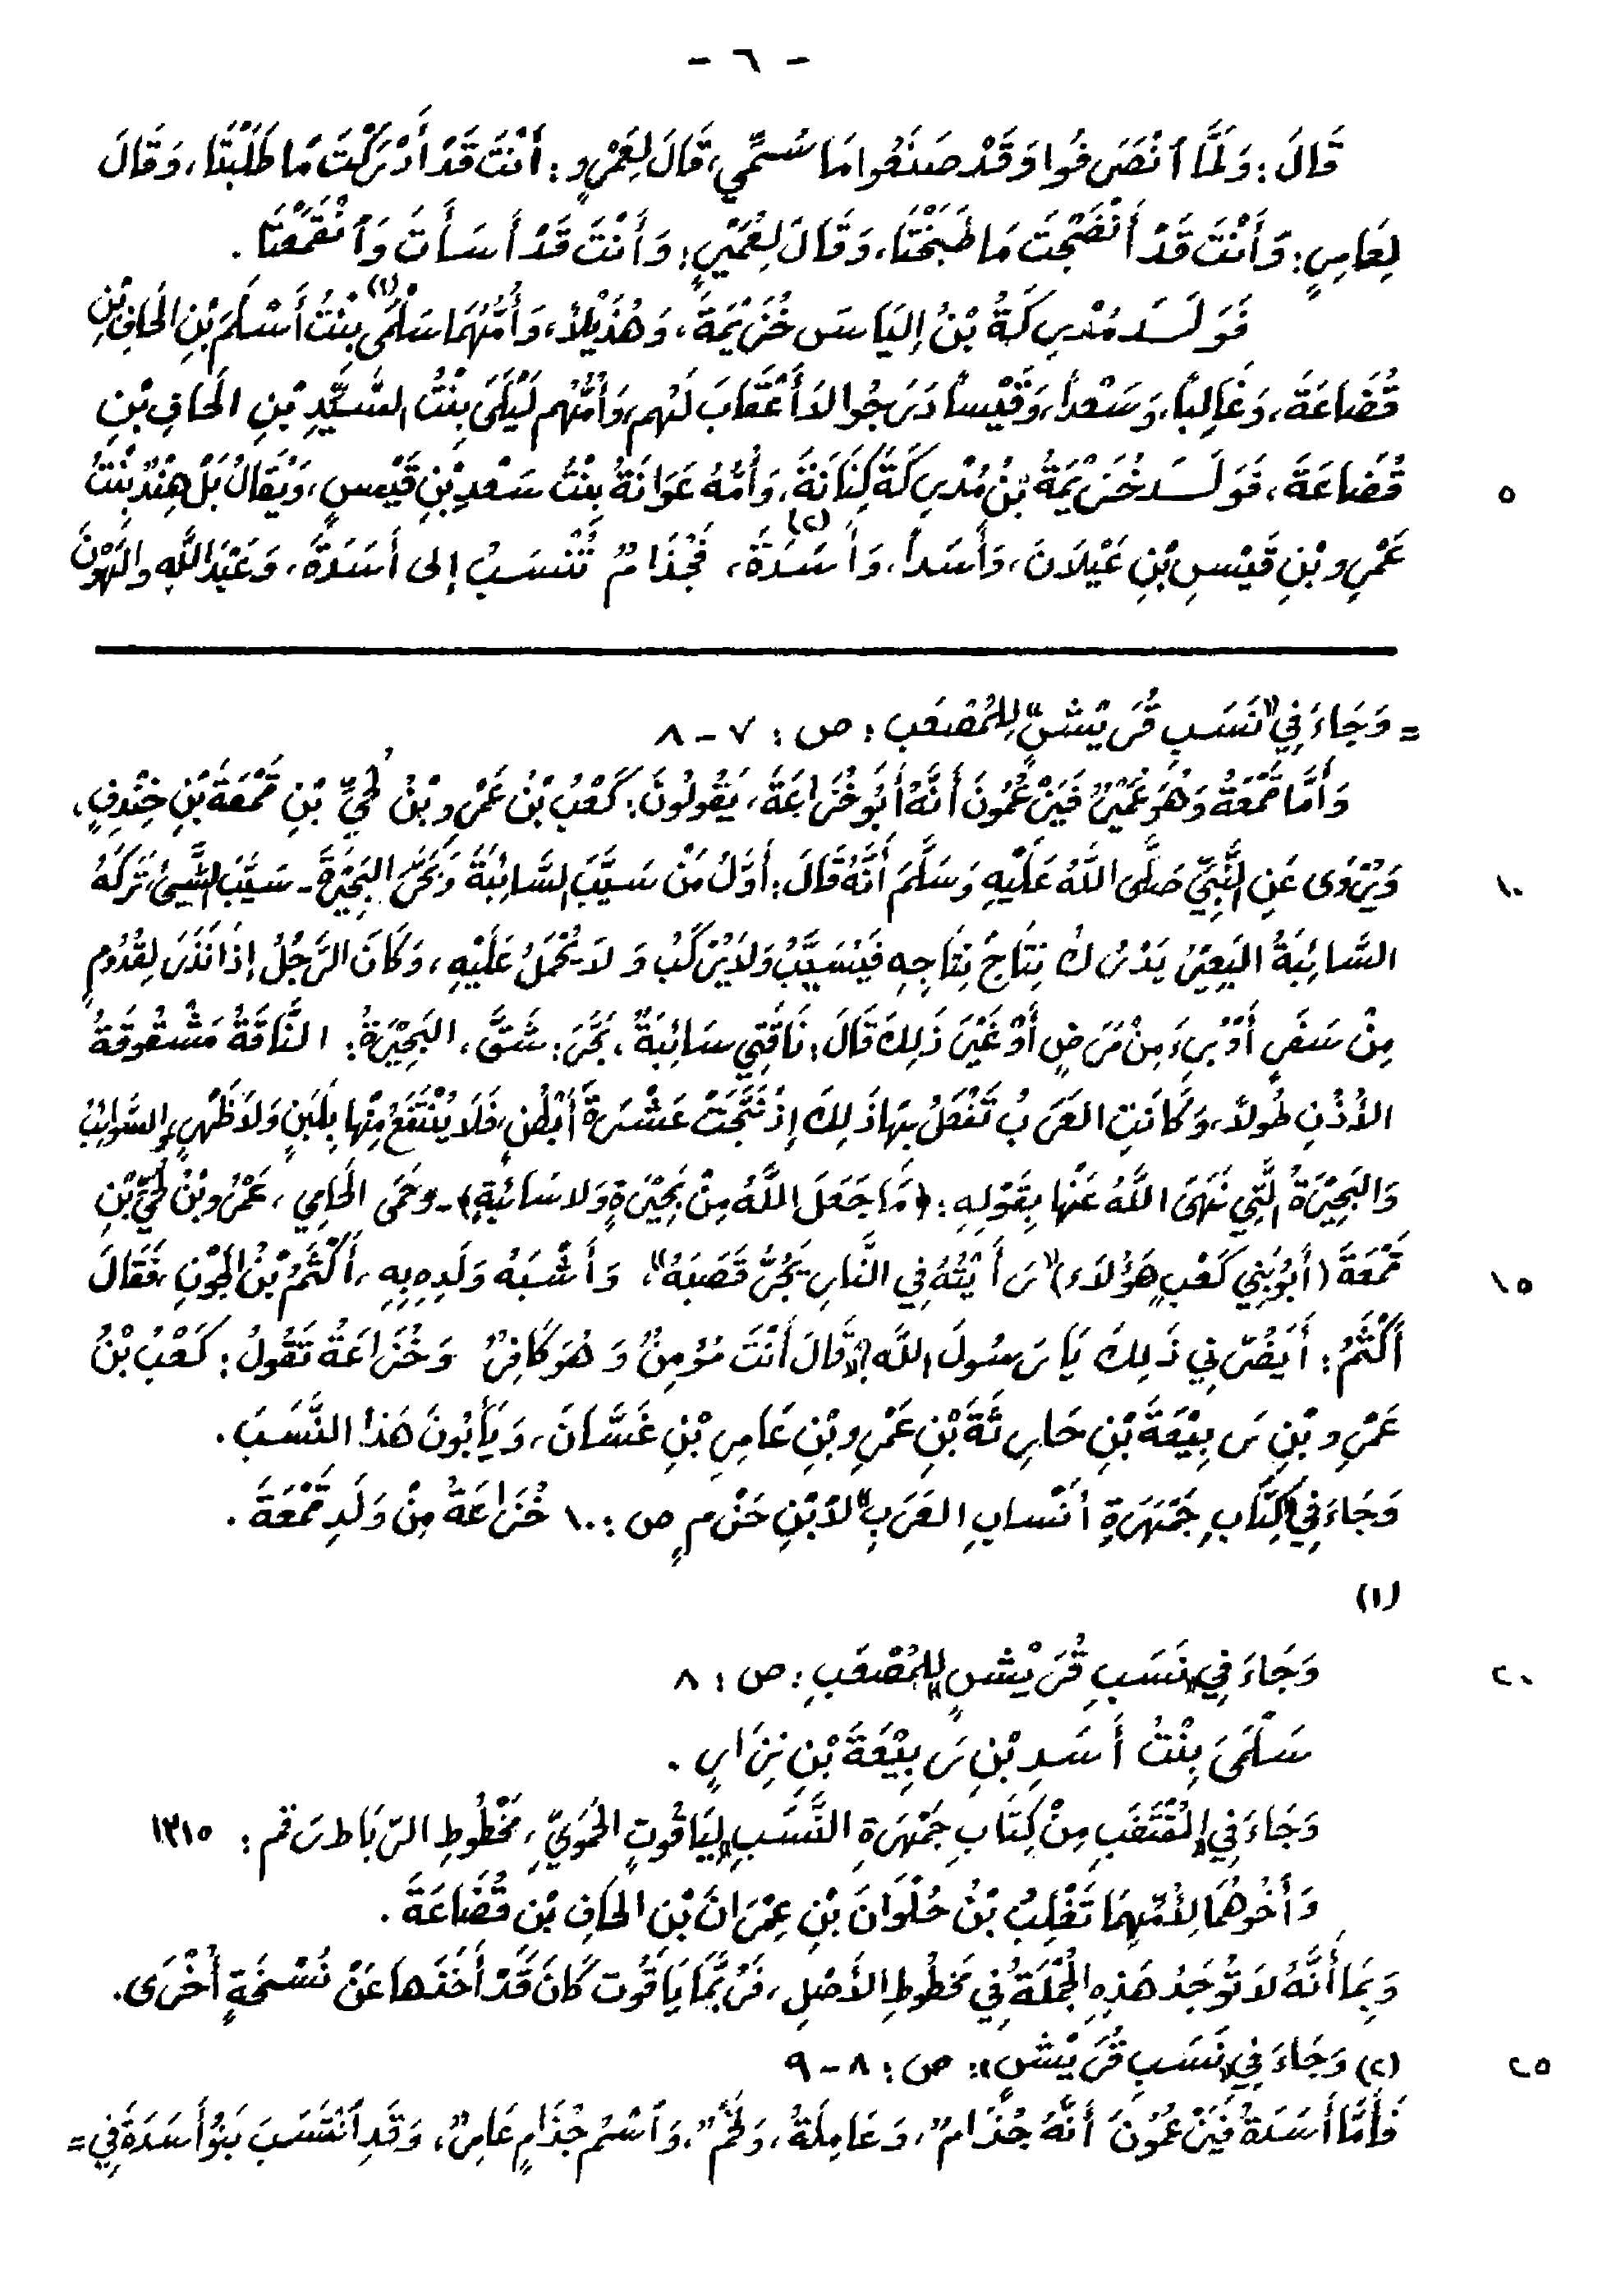 - ٦ -
قَالَ: وَلَمَّا ٱنْصَرَفُوا وَقَدْ صَنَعُوا مَا سُمِّيَ، قَالَ لِعَمْرٍو: أَنْتَ قَدْ أَدْرَكْتَ مَا طَلَبْتَا، وَقَالَ
لِعَامِرٍ: وَأَنْتَ قَدْ أَنْضَجْتَ مَا طَبَخْتَا، وَقَالَ لِعُمَيْرٍ: وَأَنْتَ قَدْ أَسَأْتَ وَٱنْقَمَعْتَا.
فَوَلَـدَ مُدْرِكَةُ بْنُ إليَاسَ خُزَيْمَةَ، وَهُذَيْلاً، وَأُمُّهُمَا سَلْمَى (١) بِنْتُ أَسْلَمَ بْنِ الحَافِ بْنِ
قُضَاعَةَ، وَغَالِباً، وَسَعْداً، وَقَيْساً دَرَجُوا لاَ أَعْقَابَ لَهُم، وَأُمُّهُم لَيْلَى بِنْتُ السَّيِّدِ بْنِ الحَافِ بْنِ
قُضَاعَةَ، فَوَلَـدَ خُزَيْمَةُ بْنُ مُدْرِكَةَ كِنَانَةَ، وَأُمُّهُ عَوَانَةُ بِنْتُ سَعْدِ بْنِ قَيْسٍ، وَيُقَالُ بَلْ هِنْدُ بِنْتُ
٥
عَمْرِو بْنِ قَيْسِ بْنِ عَيْلاَنَ، وَأَسَداً، وَأَسَدَةَ (٢)، فَجُذَامٌ تُنْسَبُ إلى أَسَدَةَ، وَعَبْدَ اللَّهِ وَالهَوْنَ
= وَجَاءَ فِي "نَسَبِ قُرَيْشٍ" لِلْمُصْعَبِ: ص: ٧ - ٨
وَأَمَّا قَمَعَةُ وَهُوَ عُمَيْرٌ فَيَزْعُمُونَ أَنَّهُ أَبُو خُزَاعَةَ، يَقُولُونَ: كَعْبُ بْنُ عَمْرِو بْنِ لُحَيِّ بْنِ قَمْعَةَ بْنِ خِنْدِفٍ،
وَيُرْوَى عَنِ النَّبِيِّ صَلَّى اللَّهُ عَلَيْهِ وَسَلَّمَ أَنَّهُ قَالَ: أَوَّلُ مَنْ سَيَّبَ السَّائِبَةَ وَبَحَّرَ البَحِيْرَةَ - سَيَّبَ الشَّيْئَ تَرَكَهُ
١٠
السَّائِبَةُ البَعِيْرُ يَدْرُكُ نِتَاجَ نِتَاجِهِ فَيُسَيَّبُ وَلاَ يُرْكَبُ وَلاَ يُحْمَلُ عَلَيْهِ، وَكَانَ الرَّجُلُ إذَا نَذَرَ لِقُدُومٍ
مِنْ سَفَرٍ أَوْ بُرْءٍ مِنْ مَرَضٍ أَوْ غَيْرَ ذَلِكَ قَالَ: نَاقَتِي سَائِبَةٌ، بَحَّرَ: شَقَّ، البَحِيْرَةُ: النَّاقَةُ مَشْقُوقَةُ
الأُذُنِ طُولاً، وَكَانَتِ العَرَبُ تَفْعَلُ بِهَا ذَلِكَ إذْ نَتَجَتْ عَشْرَةَ أَبْطُنٍ، فَلاَ يُنْتَفَعُ مِنْهَا بِلَبَنٍ وَلاَ ظَهْرٍ، وَالسَّوَائِبُ
وَالبَحِيْرَةُ الَّتِي نَهَى اللَّهُ عَنْهَا بِقَوْلِهِ: ﴿مَا جَعَلَ اللَّهُ مِنْ بَحِيْرَةٍ وَلاَ سَائِبَةٍ﴾ - وَحَمَى الحَامِي، عَمْرُو بْنُ لُحَيِّ بْنِ
قَمْعَةَ (أَبُو بَنِي كَعْبٍ هَؤُلاَء) "رَأَيْتُهُ فِي النَّارِ يَجُرُّ قَصَبَهُ"، وَأَشْبَهُ وَلَدِهِ بِهِ، أَكْثَمُ بْنُ الجَوْنِ، فَقَالَ
١٥
أَكْثَمُ: أَيَضُرُّنِي ذَلِكَ يَا رَسُولَ اللَّهِ؟ قَالَ أَنْتَ مُؤْمِنٌ وَهُوَ كَافِرٌ وَخُزَاعَةُ تَقُولُ: كَعْبُ بْنُ
عَمْرِو بْنِ رَبِيْعَةَ بْنِ حَارِثَةَ بْنِ عَمْرِو بْنِ عَامِرِ بْنِ غَسَّانَ، وَيَأْبُونَ هَذَا النَّسَبَ.
وَجَاءَ فِي "كِتَابِ جَمْهَرَةِ أَنْسَابِ العَرَبِ" لاَبْنِ حَزْمٍ ص: ١٠ خُزَاعَةُ مِنْ وَلَدِ قَمْعَةَ.
(١)
وَجَاءَ فِي "نَسَبِ قُرَيْشٍ" لِلْمُصْعَبِ: ص: ٨
٢٠
سَلْمَى بِنْتُ أَسَدِ بْنِ رَبِيْعَةَ بْنِ نِزَارٍ.
وَجَاءَ فِي "المُقْتَضَبِ مِنْ كِتَابِ جَمْهَرَةِ النَّسَبِ" لِيَاقُوتٍ الحَمَوِيِّ، مَخْطُوطِ الرّبَاط رَقم: ١٣١٥
وَأَخُوهُمَا لِأُمِّهِمَا تَغْلِبُ بْنُ حُلْوَانَ بْنِ عِمْرَانَ بْنِ الحَافِ بْنِ قُضَاعَةَ.
وَبِمَا أَنَّهُ لاَ تُوجَدُ هَذِهِ الجُمْلَةُ فِي مَخْطُوطِ الأَصْلِ، فَرُبَّمَا يَاقُوت كَانَ قَدْ أَخَذَهَا عَنْ نُسْخَةٍ أُخْرَى.
(٢) وَجَاءَ فِي "نَسَبِ قُرَيْشٍ": ص: ٨ - ٩
٢٥
فَأَمَّا أَسَدَةُ فَيَزْعُمُونَ أَنَّهُ جُذَامٌ، وَعَامِلَةُ، وَلَخْمٌ، وَٱسْمُ جُذَامٍ عَامِرٌ، وَقَدِ ٱنْتَسَبَ بَنُو أَسَدَةَ فِي =